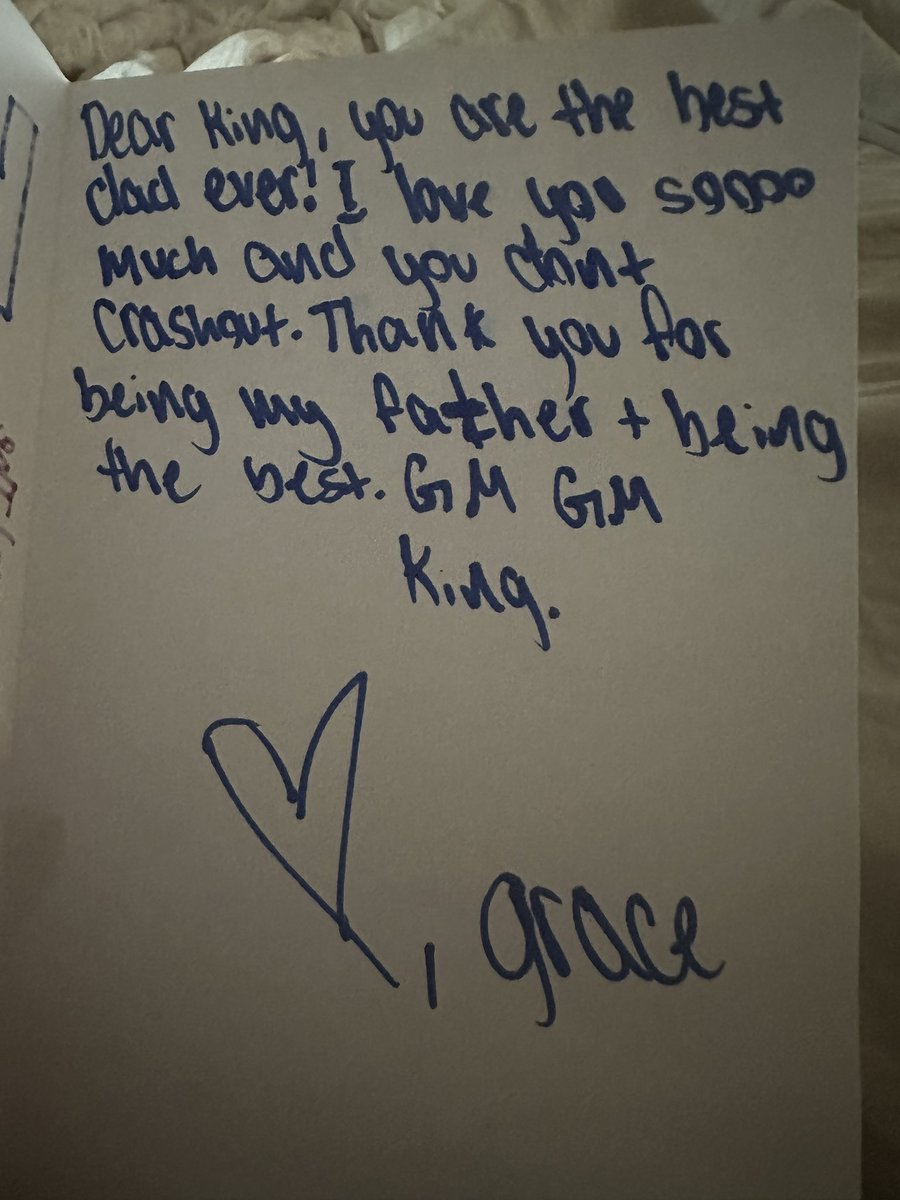 Dear King, you are the best
dad ever! I love you soooo
much and you dont
crashout. Thank you for
being my father + being
the best. GM GM
King.
, grace